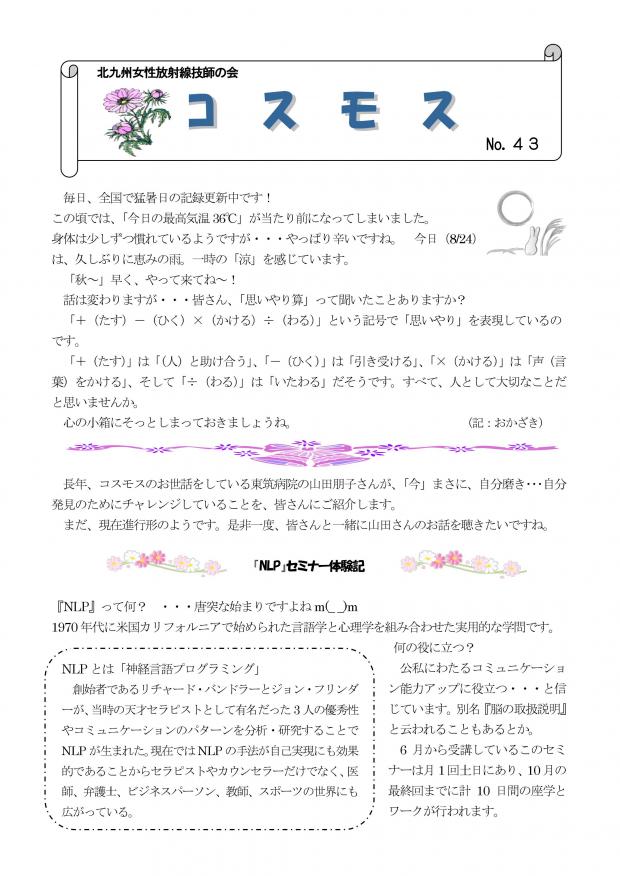 北九州女性放射線技師の会
コスモス
No. 43
毎日、全国で猛暑日の記録更新中です！
この頃では、「今日の最高気温 36℃」が当たり前になってしまいました。
身体は少しずつ慣れているようですが・・・やっぱり辛いですね。　今日（8/24）
は、久しぶりに恵みの雨。一時の「涼」を感じています。
「秋～」早く、やって来てね～！
話は変わりますが・・・皆さん、「思いやり算」って聞いたことありますか？
「＋（たす）－（ひく）×（かける）÷（わる）」という記号で「思いやり」を表現しているの
です。
「＋（たす）」は「（人）と助け合う」、「－（ひく）」は「引き受ける」、「×（かける）」は「声（言
葉）をかける」、そして「÷（わる）」は「いたわる」だそうです。すべて、人として大切なことだ
と思いませんか。
心の小箱にそっとしまっておきましょうね。　（記：おかざき）
長年、コスモスのお世話をしている東筑病院の山田朋子さんが、「今」まさに、自分磨き･･･自分
発見のためにチャレンジしていることを、皆さんにご紹介します。
まだ、現在進行形のようです。是非一度、皆さんと一緒に山田さんのお話を聴きたいですね。
「NLP」セミナー体験記
『NLP』って何？　・・・唐突な始まりですよね m(_ _)m
1970 年代に米国カリフォルニアで始められた言語学と心理学を組み合わせた実用的な学問です。
NLP とは「神経言語プログラミング」
創始者であるリチャード・バンドラーとジョン・フリンダ
ーが、当時の天才セラピストとして有名だった 3 人の優秀性
やコミュニケーションのパターンを分析・研究することで
NLP が生まれた。現在では NLP の手法が自己実現にも効果
的であることからセラピストやカウンセラーだけでなく、医
師、弁護士、ビジネスパーソン、教師、スポーツの世界にも
広がっている。
何の役に立つ？
公私にわたるコミュニケーショ
ン能力アップに役立つ・・・と信
じています。別名『脳の取扱説明』
と云われることもあるとか。
6 月から受講しているこのセミ
ナーは月 1 回土日にあり、10 月の
最終回までに計 10 日間の座学と
ワークが行われます。